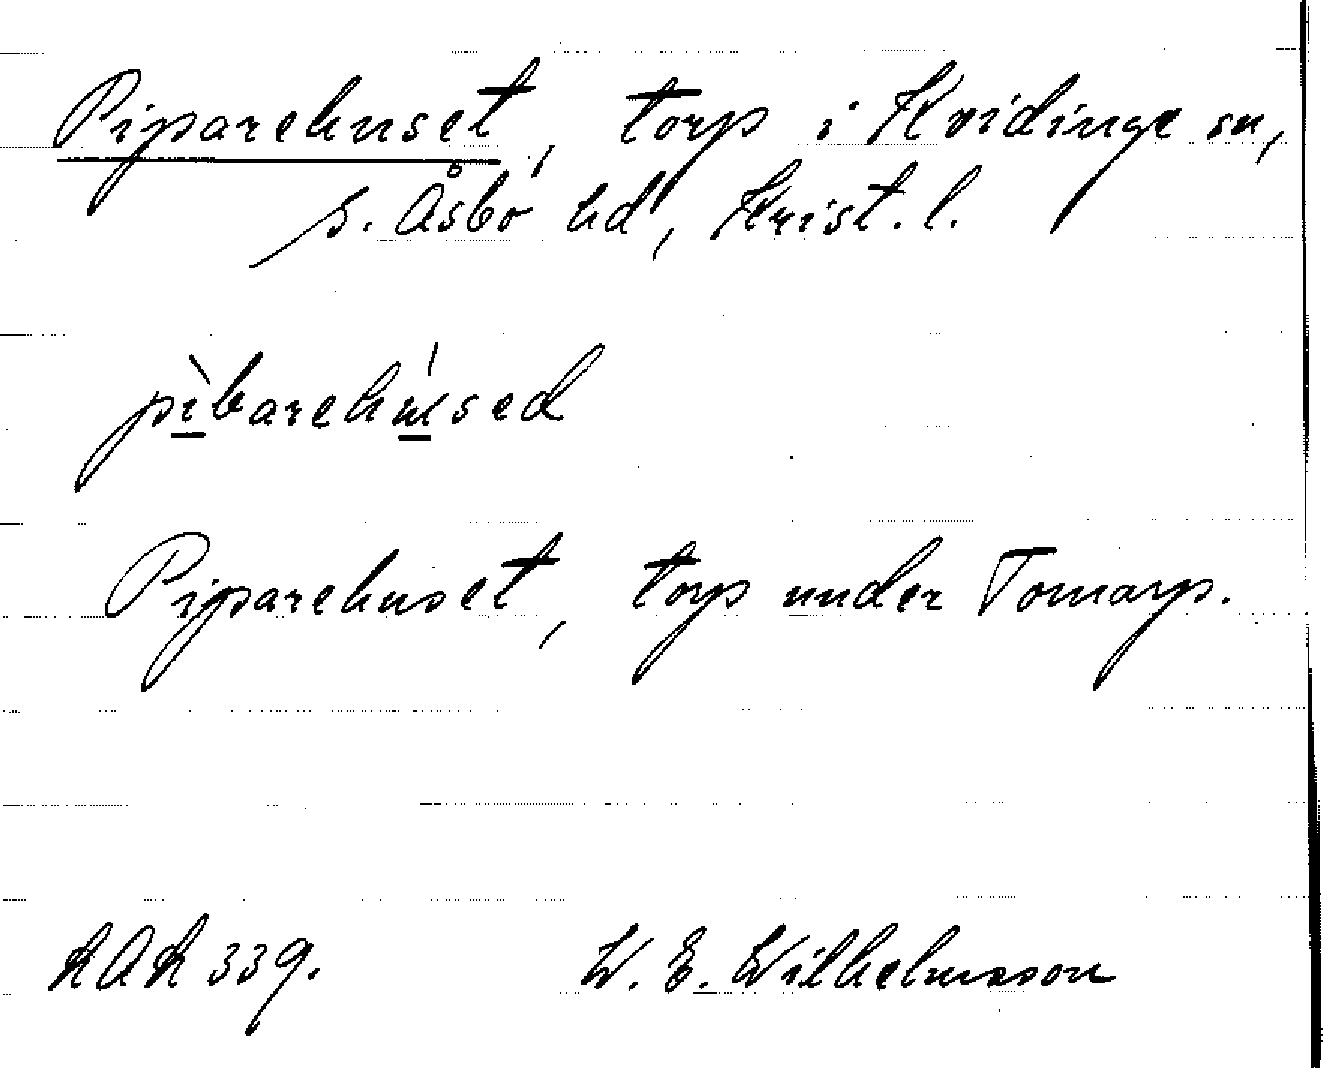 Piparehuset, torp i Kvidinge sn,
S. Åsbo hd, Krist. l.
pìbarehúsed
Piparehuset, torp under Tomarp.
LAL 339. W. E. Wilhelmsson